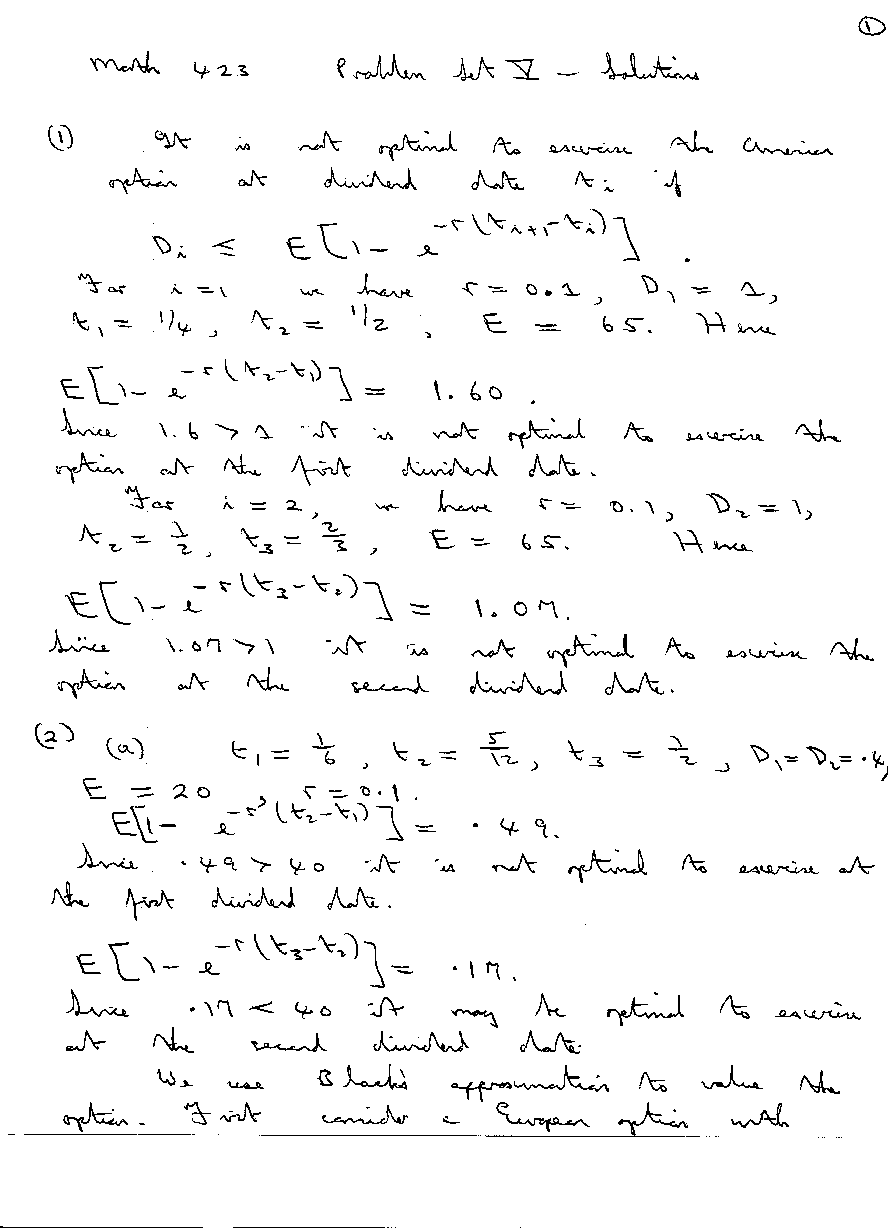 ①
Math 423 Problem Set V – Solutions
(1) It is not optimal to exercise the American
option at dividend date tᵢ if
Dᵢ ≤ E[1 - e^{-r(tᵢ₊₁ - tᵢ)}].
For i = 1 we have r = 0.1, D₁ = 1,
t₁ = 1/4, t₂ = 1/2, E = 65. Hence
E[1 - e^{-r(t₂-t₁)}] = 1.60.
Since 1.6 > 1 it is not optimal to exercise the
option at the first dividend date.
For i = 2, we have r = 0.1, D₂ = 1,
t₂ = 1/2, t₃ = 2/3, E = 65. Hence
E[1 - e^{-r(t₃-t₂)}] = 1.07.
Since 1.07 > 1 it is not optimal to exercise the
option at the second dividend date.
(2) (a) t₁ = 1/6, t₂ = 5/12, t₃ = 1/2, D₁ = D₂ = .4,
E = 20 r = 0.1.
E[1 - e^{-r(t₂-t₁)}] = .49.
Since .49 > 40 it is not optimal to exercise at
the first dividend date.
E[1 - e^{-r(t₃-t₂)}] = .17.
Since .17 < 40 it may be optimal to exercise
at the second dividend date.
We use Black's approximation to value the
option. First consider a European option with